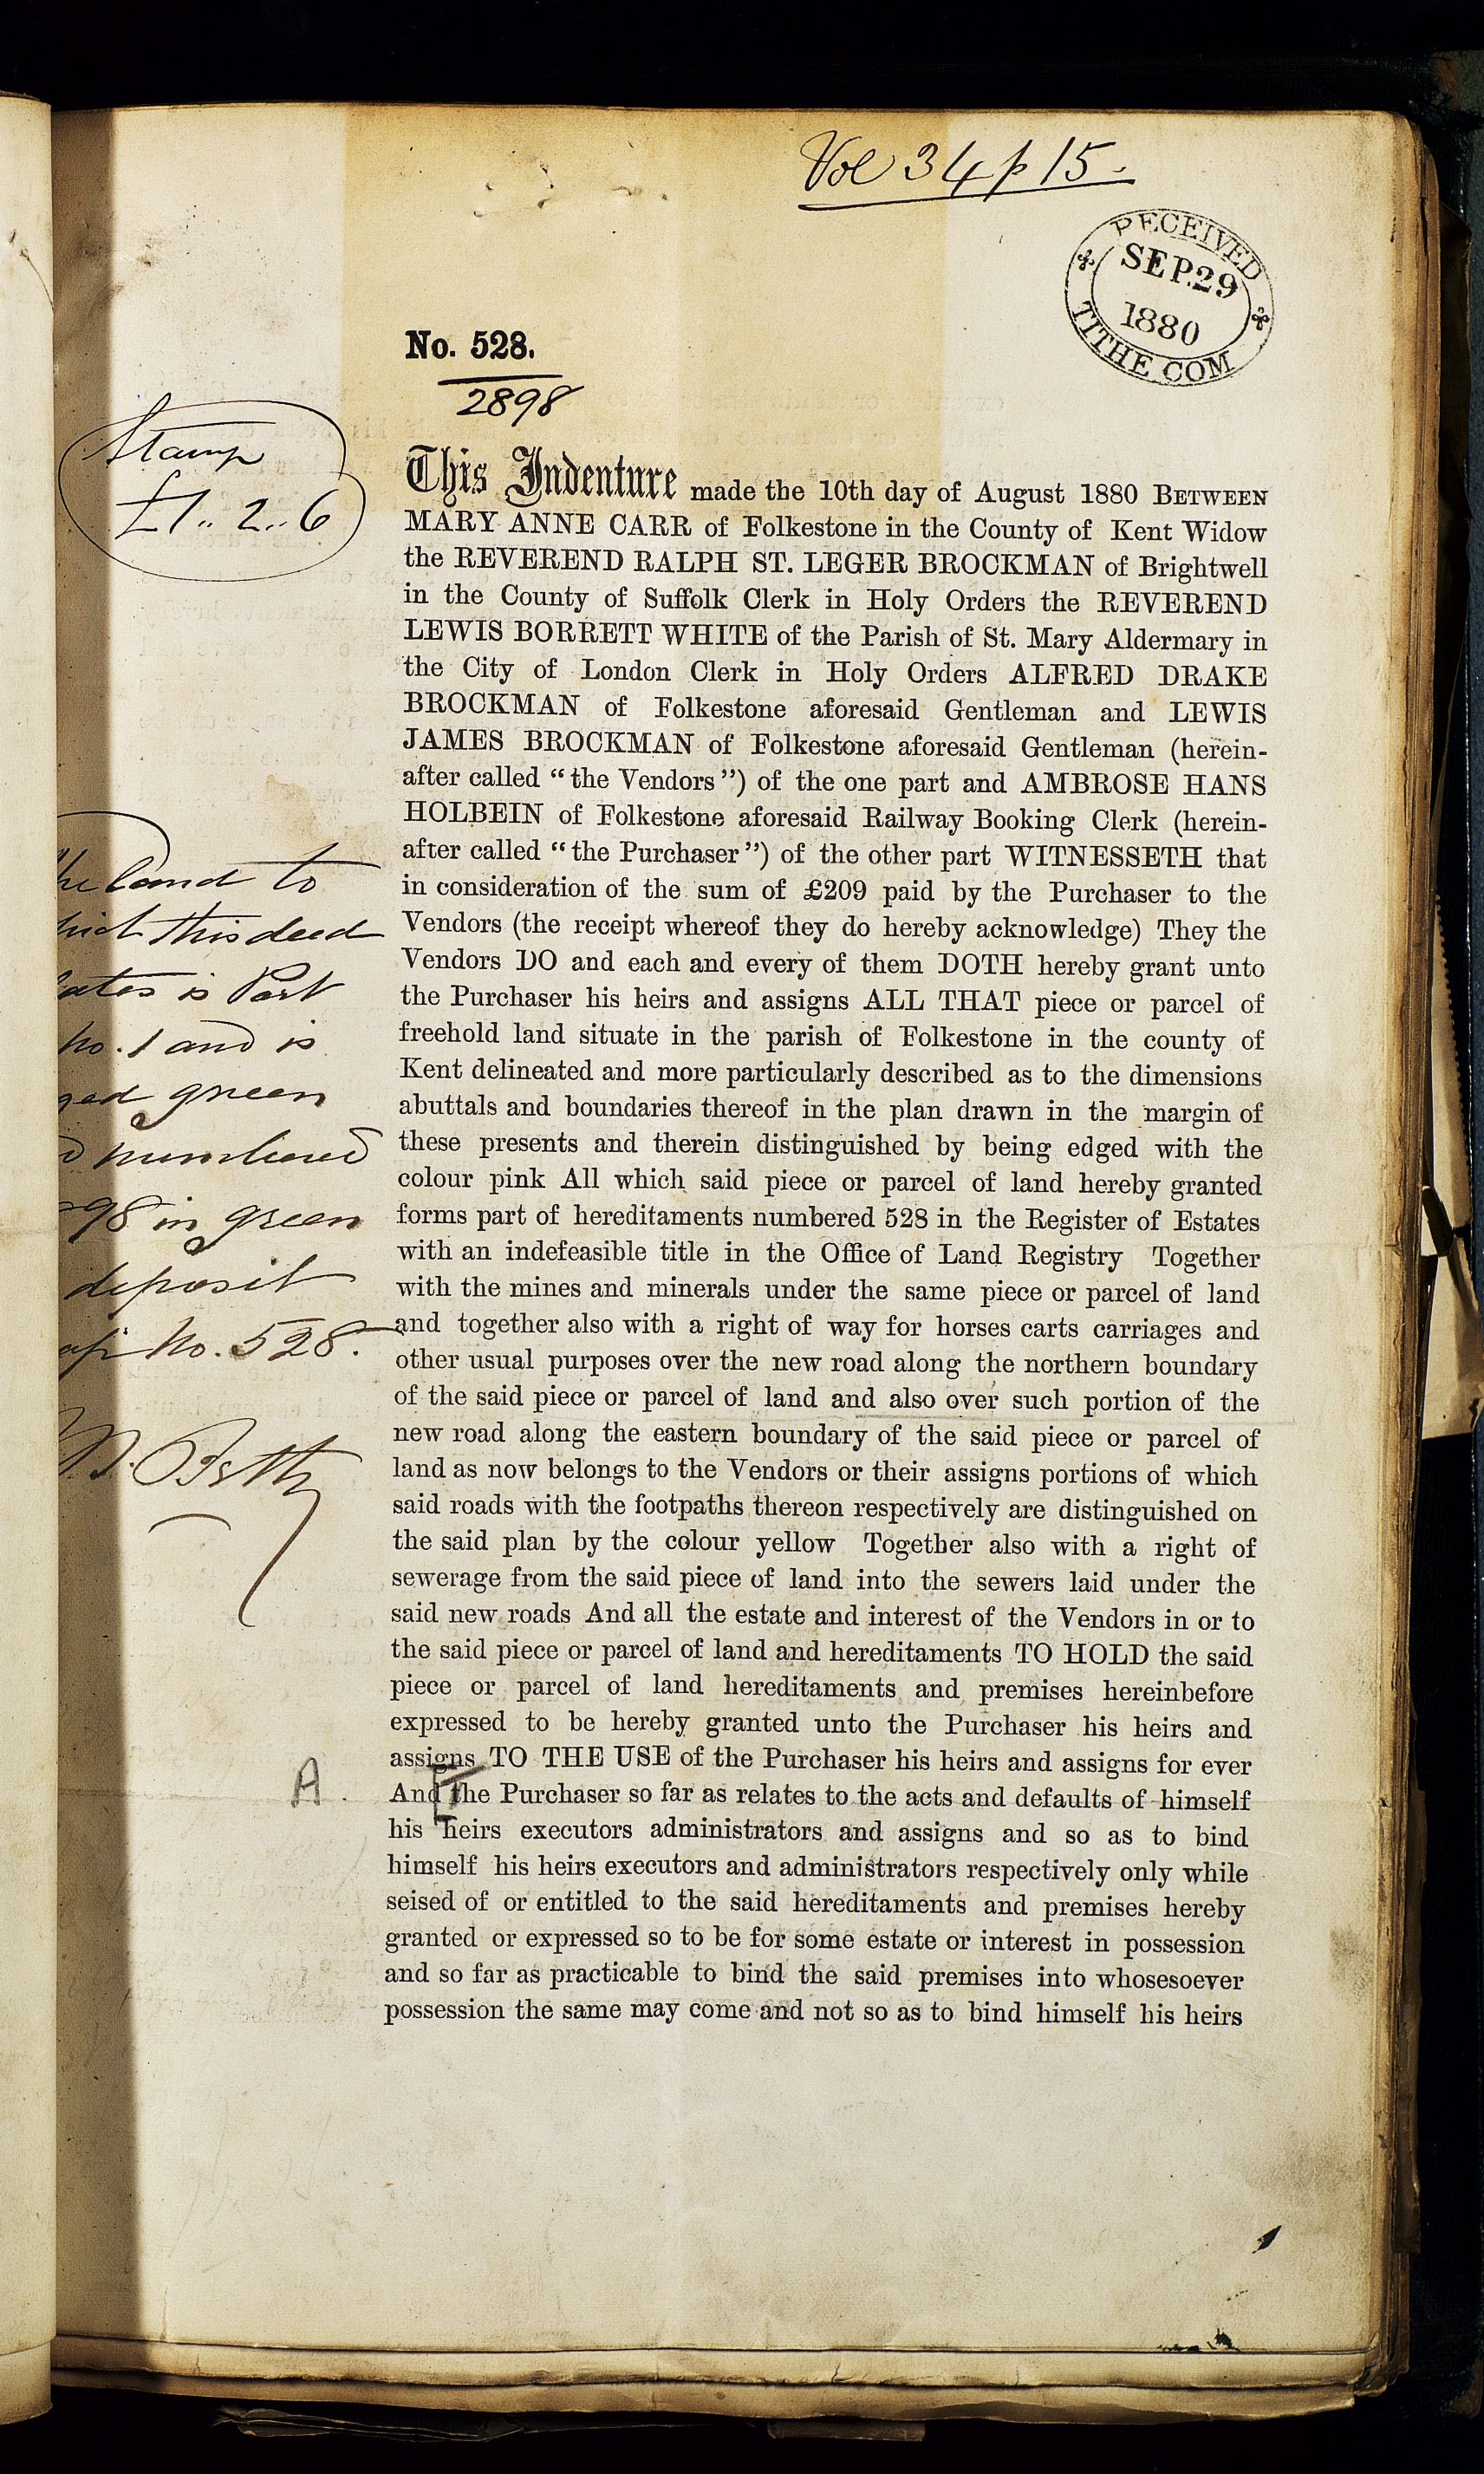 Vol 34 p 15.
RECEIVED
SEP.29
1880
TITHE COM
No. 528.
2898
Stamp
£1 .. 2 .. 6
This Indenture made the 10th day of August 1880 BETWEEN
MARY ANNE CARR of Folkestone in the County of Kent Widow
the REVEREND RALPH ST. LEGER BROCKMAN of Brightwell
in the County of Suffolk Clerk in Holy Orders the REVEREND
LEWIS BORRETT WHITE of the Parish of St. Mary Aldermary in
the City of London Clerk in Holy Orders ALFRED DRAKE
BROCKMAN of Folkestone aforesaid Gentleman and LEWIS
JAMES BROCKMAN of Folkestone aforesaid Gentleman (herein-
after called “the Vendors”) of the one part and AMBROSE HANS
HOLBEIN of Folkestone aforesaid Railway Booking Clerk (herein-
after called “the Purchaser”) of the other part WITNESSETH that
in consideration of the sum of £209 paid by the Purchaser to the
Vendors (the receipt whereof they do hereby acknowledge) They the
Vendors DO and each and every of them DOTH hereby grant unto
the Purchaser his heirs and assigns ALL THAT piece or parcel of
freehold land situate in the parish of Folkestone in the county of
Kent delineated and more particularly described as to the dimensions
abuttals and boundaries thereof in the plan drawn in the margin of
these presents and therein distinguished by being edged with the
colour pink All which said piece or parcel of land hereby granted
forms part of hereditaments numbered 528 in the Register of Estates
with an indefeasible title in the Office of Land Registry Together
with the mines and minerals under the same piece or parcel of land
and together also with a right of way for horses carts carriages and
other usual purposes over the new road along the northern boundary
of the said piece or parcel of land and also over such portion of the
new road along the eastern boundary of the said piece or parcel of
land as now belongs to the Vendors or their assigns portions of which
said roads with the footpaths thereon respectively are distinguished on
the said plan by the colour yellow Together also with a right of
sewerage from the said piece of land into the sewers laid under the
said new roads And all the estate and interest of the Vendors in or to
the said piece or parcel of land and hereditaments TO HOLD the said
piece or parcel of land hereditaments and premises hereinbefore
expressed to be hereby granted unto the Purchaser his heirs and
assigns TO THE USE of the Purchaser his heirs and assigns for ever
And the Purchaser so far as relates to the acts and defaults of himself
his heirs executors administrators and assigns and so as to bind
himself his heirs executors and administrators respectively only while
seised of or entitled to the said hereditaments and premises hereby
granted or expressed so to be for some estate or interest in possession
and so far as practicable to bind the said premises into whosesoever
possession the same may come and not so as to bind himself his heirs
he land to
hich this deed
lates is Part
No. 1 and is
ged green
d numbered
98 in green
deposit
ap No. 528.
A.